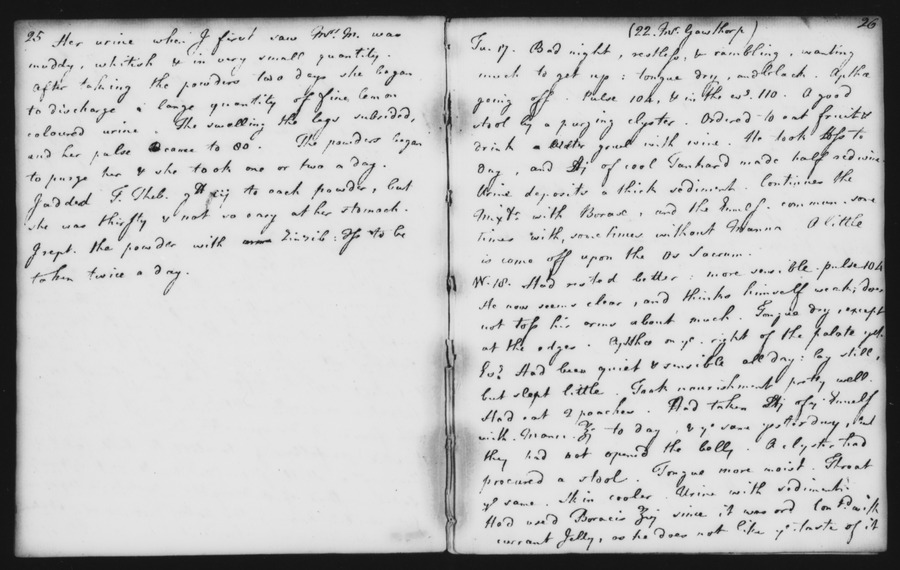 25
Her urine when I first saw Mrs. M. was
muddy, whitish & in very small quantity.
After taking the powders two days she began
to discharge a large quantity of fine lemon
coloured urine. The swelling the legs subsided,
and her pulse came to 80. The powders began
to purge her & she took one or two a day.
I added F. Theb. to each powder, but
she was thirsty & not so easy at her stomach.
I rept. the powder with Zinzib: to be
taken twice a day.
26
(22. Mr. Gawthorp)
Tu. 17. Bad night, restless, & rambling, wanting
much to get up: tongue dry, and black. Apthæ
going off. Pulse 104, & in the evg. 110. A good
stool by a purging clyster. Ordered to eat fruit &
drink water gruel with wine. He took to
day, and of cool Tankard made half red wine.
Urine deposits a thick sediment. Continues the
with Borax, and the commun. some
times with, sometimes without Manna. A little
is come off upon the Os Sacrum.
W. 18. Had rested better: more sensible. pulse 104
He now seems clear, and thinks himself weak; does
not toss his arms about much. Tongue dry, except
at the edges. Apthæ on ye. right of the palate yet.
Had been quiet & sensible all day: lay still,
but slept little. Took nourishment pretty well.
Had eat 2 peaches. Had taken of ye.
with Mann. to day, & ye same yesterday, but
they had not opened the belly. A clyster had
procured a stool. Tongue more moist. Throat
ye same. Skin cooler. Urine with sediment.
Had used Boracis since it was ord. Contd. with
currant Jelly, as he does not like ye. taste of it